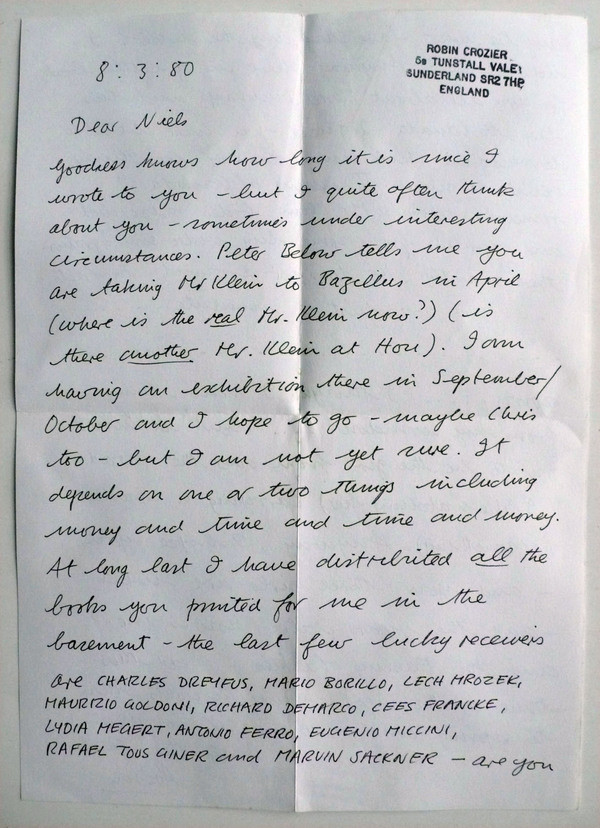 8:3:80
ROBIN CROZIER
5B TUNSTALL VALE
SUNDERLAND SR2 7HP
ENGLAND
Dear Niels
Goodness knows how long it is since I
wrote to you – but I quite often think
about you – sometimes under interesting
circumstances. Peter Below tells me you
are taking Mr Klein to Bazellus in April
(where is the real Mr. Klein now?) (is
there another Mr. Klein at Hou). I am
having an exhibition there in September/
October and I hope to go – maybe Chris
too – but I am not yet sure. It
depends on one or two things including
money and time and time and money.
At long last I have distributed all the
books you printed for me in the
basement – the last few lucky receivers
are CHARLES DREYFUS, MARIO BORILLO, LECH MROZEK,
MAURIZIO GOLDONI, RICHARD DEMARCO, CEES FRANCKE,
LYDIA MEGERT, ANTONIO FERRO, EUGENIO MICCINI,
RAFAEL TOUS GINER and MARVIN SACKNER – are you